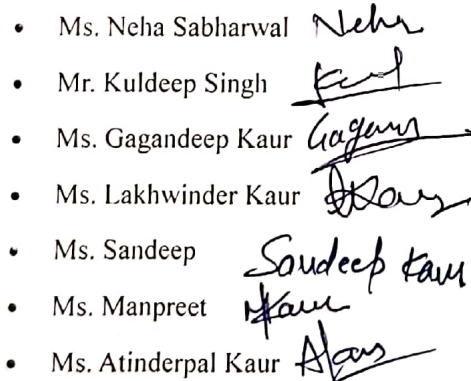 • Ms. Neha Sabharwal Neha
• Mr. Kuldeep Singh
• Ms. Gagandeep Kaur Gagan
• Ms. Lakhwinder Kaur
• Ms. Sandeep Sandeep Kaur
• Ms. Manpreet MKaur
• Ms. Atinderpal Kaur